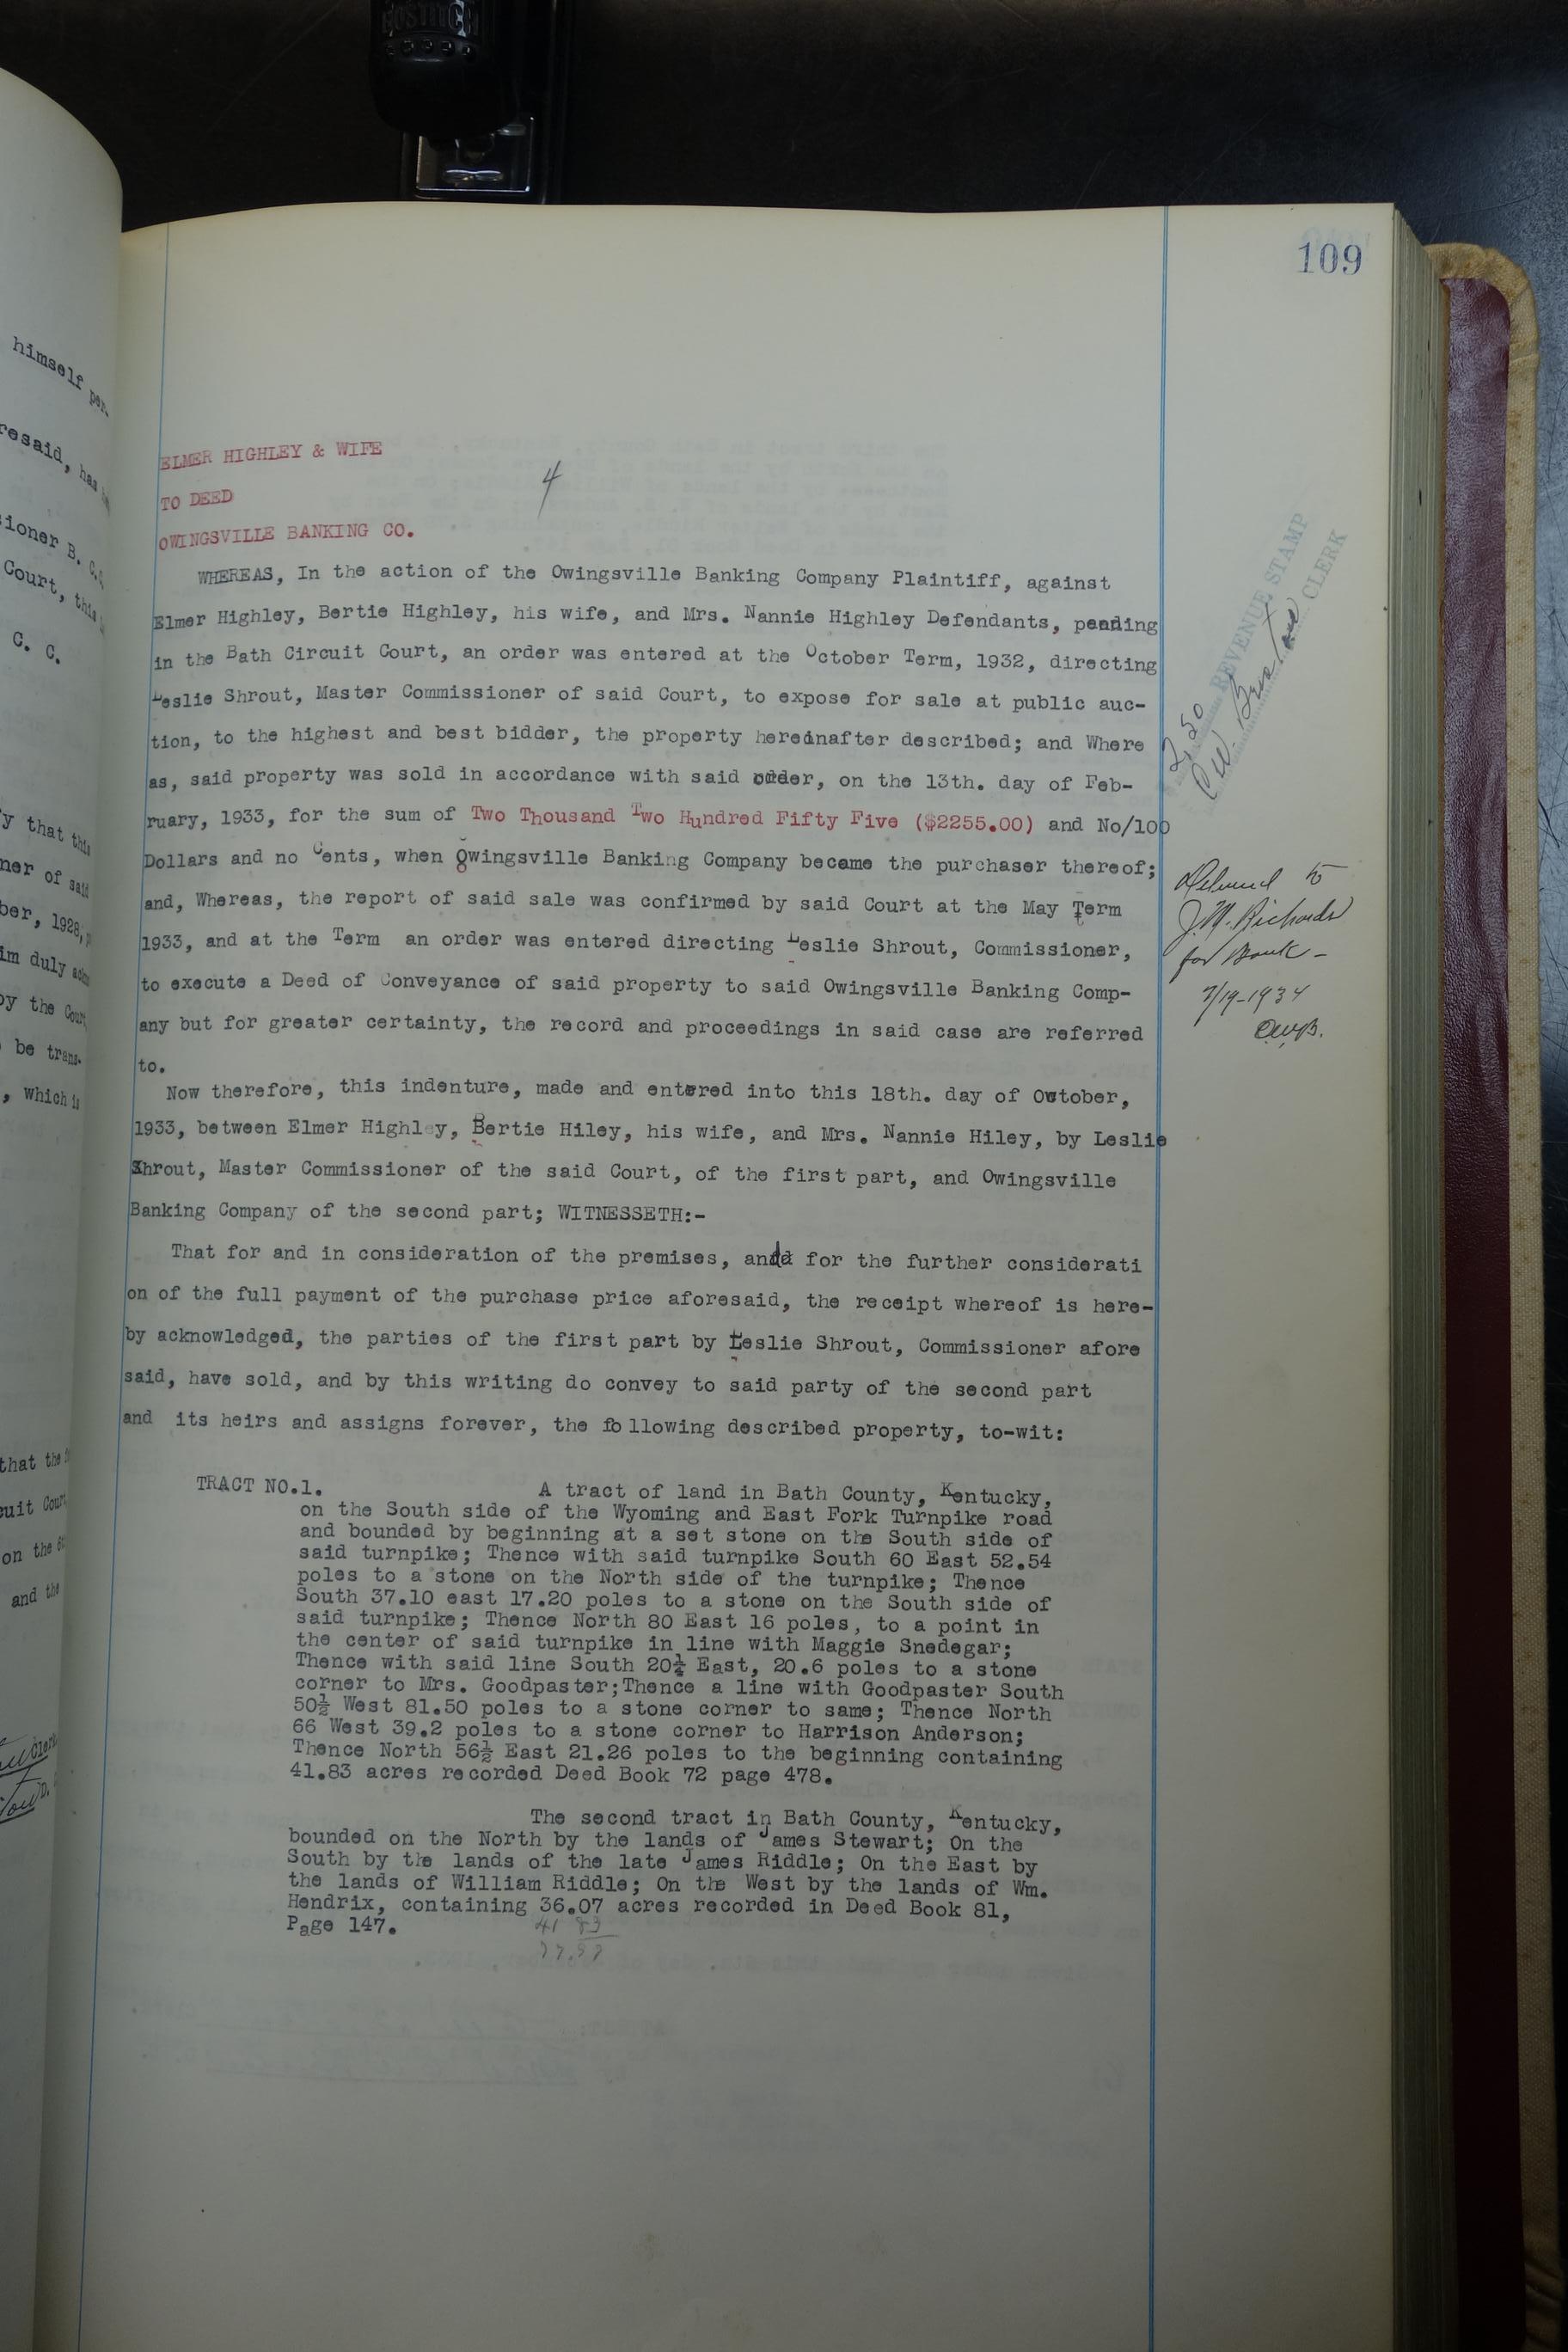 BOSTITCH
109
himself per-
resaid, has
sioner B. C.C.
Court, this
C. C.
y that this
ner of said
ber, 1928,
im duly
by the Court
be trans-
, which is
that the
cuit Court
on the
and the
ELMER HIGHLEY & WIFE
4
TO DEED
OWINGSVILLE BANKING CO.
WHEREAS, In the action of the Owingsville Banking Company Plaintiff, against
Elmer Highley, Bertie Highley, his wife, and Mrs. Nannie Highley Defendants, pending
in the Bath Circuit Court, an order was entered at the October Term, 1932, directing
Leslie Shrout, Master Commissioner of said Court, to expose for sale at public auc-
tion, to the highest and best bidder, the property hereinafter described; and Where
as, said property was sold in accordance with said order, on the 13th. day of Feb-
ruary, 1933, for the sum of Two Thousand Two Hundred Fifty Five ($2255.00) and No/100
Dollars and no Cents, when Owingsville Banking Company became the purchaser thereof;
and, Whereas, the report of said sale was confirmed by said Court at the May Term
1933, and at the Term an order was entered directing Leslie Shrout, Commissioner,
to execute a Deed of Conveyance of said property to said Owingsville Banking Comp-
any but for greater certainty, the record and proceedings in said case are referred
to.
Now therefore, this indenture, made and entered into this 18th. day of October,
1933, between Elmer Highley, Bertie Hiley, his wife, and Mrs. Nannie Hiley, by Leslie
Shrout, Master Commissioner of the said Court, of the first part, and Owingsville
Banking Company of the second part; WITNESSETH:-
That for and in consideration of the premises, and for the further considerati
on of the full payment of the purchase price aforesaid, the receipt whereof is here-
by acknowledged, the parties of the first part by Leslie Shrout, Commissioner afore
said, have sold, and by this writing do convey to said party of the second part
and its heirs and assigns forever, the following described property, to-wit:
TRACT NO.1. A tract of land in Bath County, Kentucky,
on the South side of the Wyoming and East Fork Turnpike road
and bounded by beginning at a set stone on the South side of
said turnpike; Thence with said turnpike South 60 East 52.54
poles to a stone on the North side of the turnpike; Thence
South 37.10 east 17.20 poles to a stone on the South side of
said turnpike; Thence North 80 East 16 poles, to a point in
the center of said turnpike in line with Maggie Snedegar;
Thence with said line South 20¼ East, 20.6 poles to a stone
corner to Mrs. Goodpaster;Thence a line with Goodpaster South
50½ West 81.50 poles to a stone corner to same; Thence North
66 West 39.2 poles to a stone corner to Harrison Anderson;
Thence North 56½ East 21.26 poles to the beginning containing
41.83 acres recorded Deed Book 72 page 478.
The second tract in Bath County, Kentucky,
bounded on the North by the lands of James Stewart; On the
South by the lands of the late James Riddle; On the East by
the lands of William Riddle; On the West by the lands of Wm.
Hendrix, containing 36.07 acres recorded in Deed Book 81,
Page 147.
41 83
2.50 REVENUE STAMP
CLERK
Delivered to
J.M. Richards
for Bank -
7/19-1934
C.W.B.